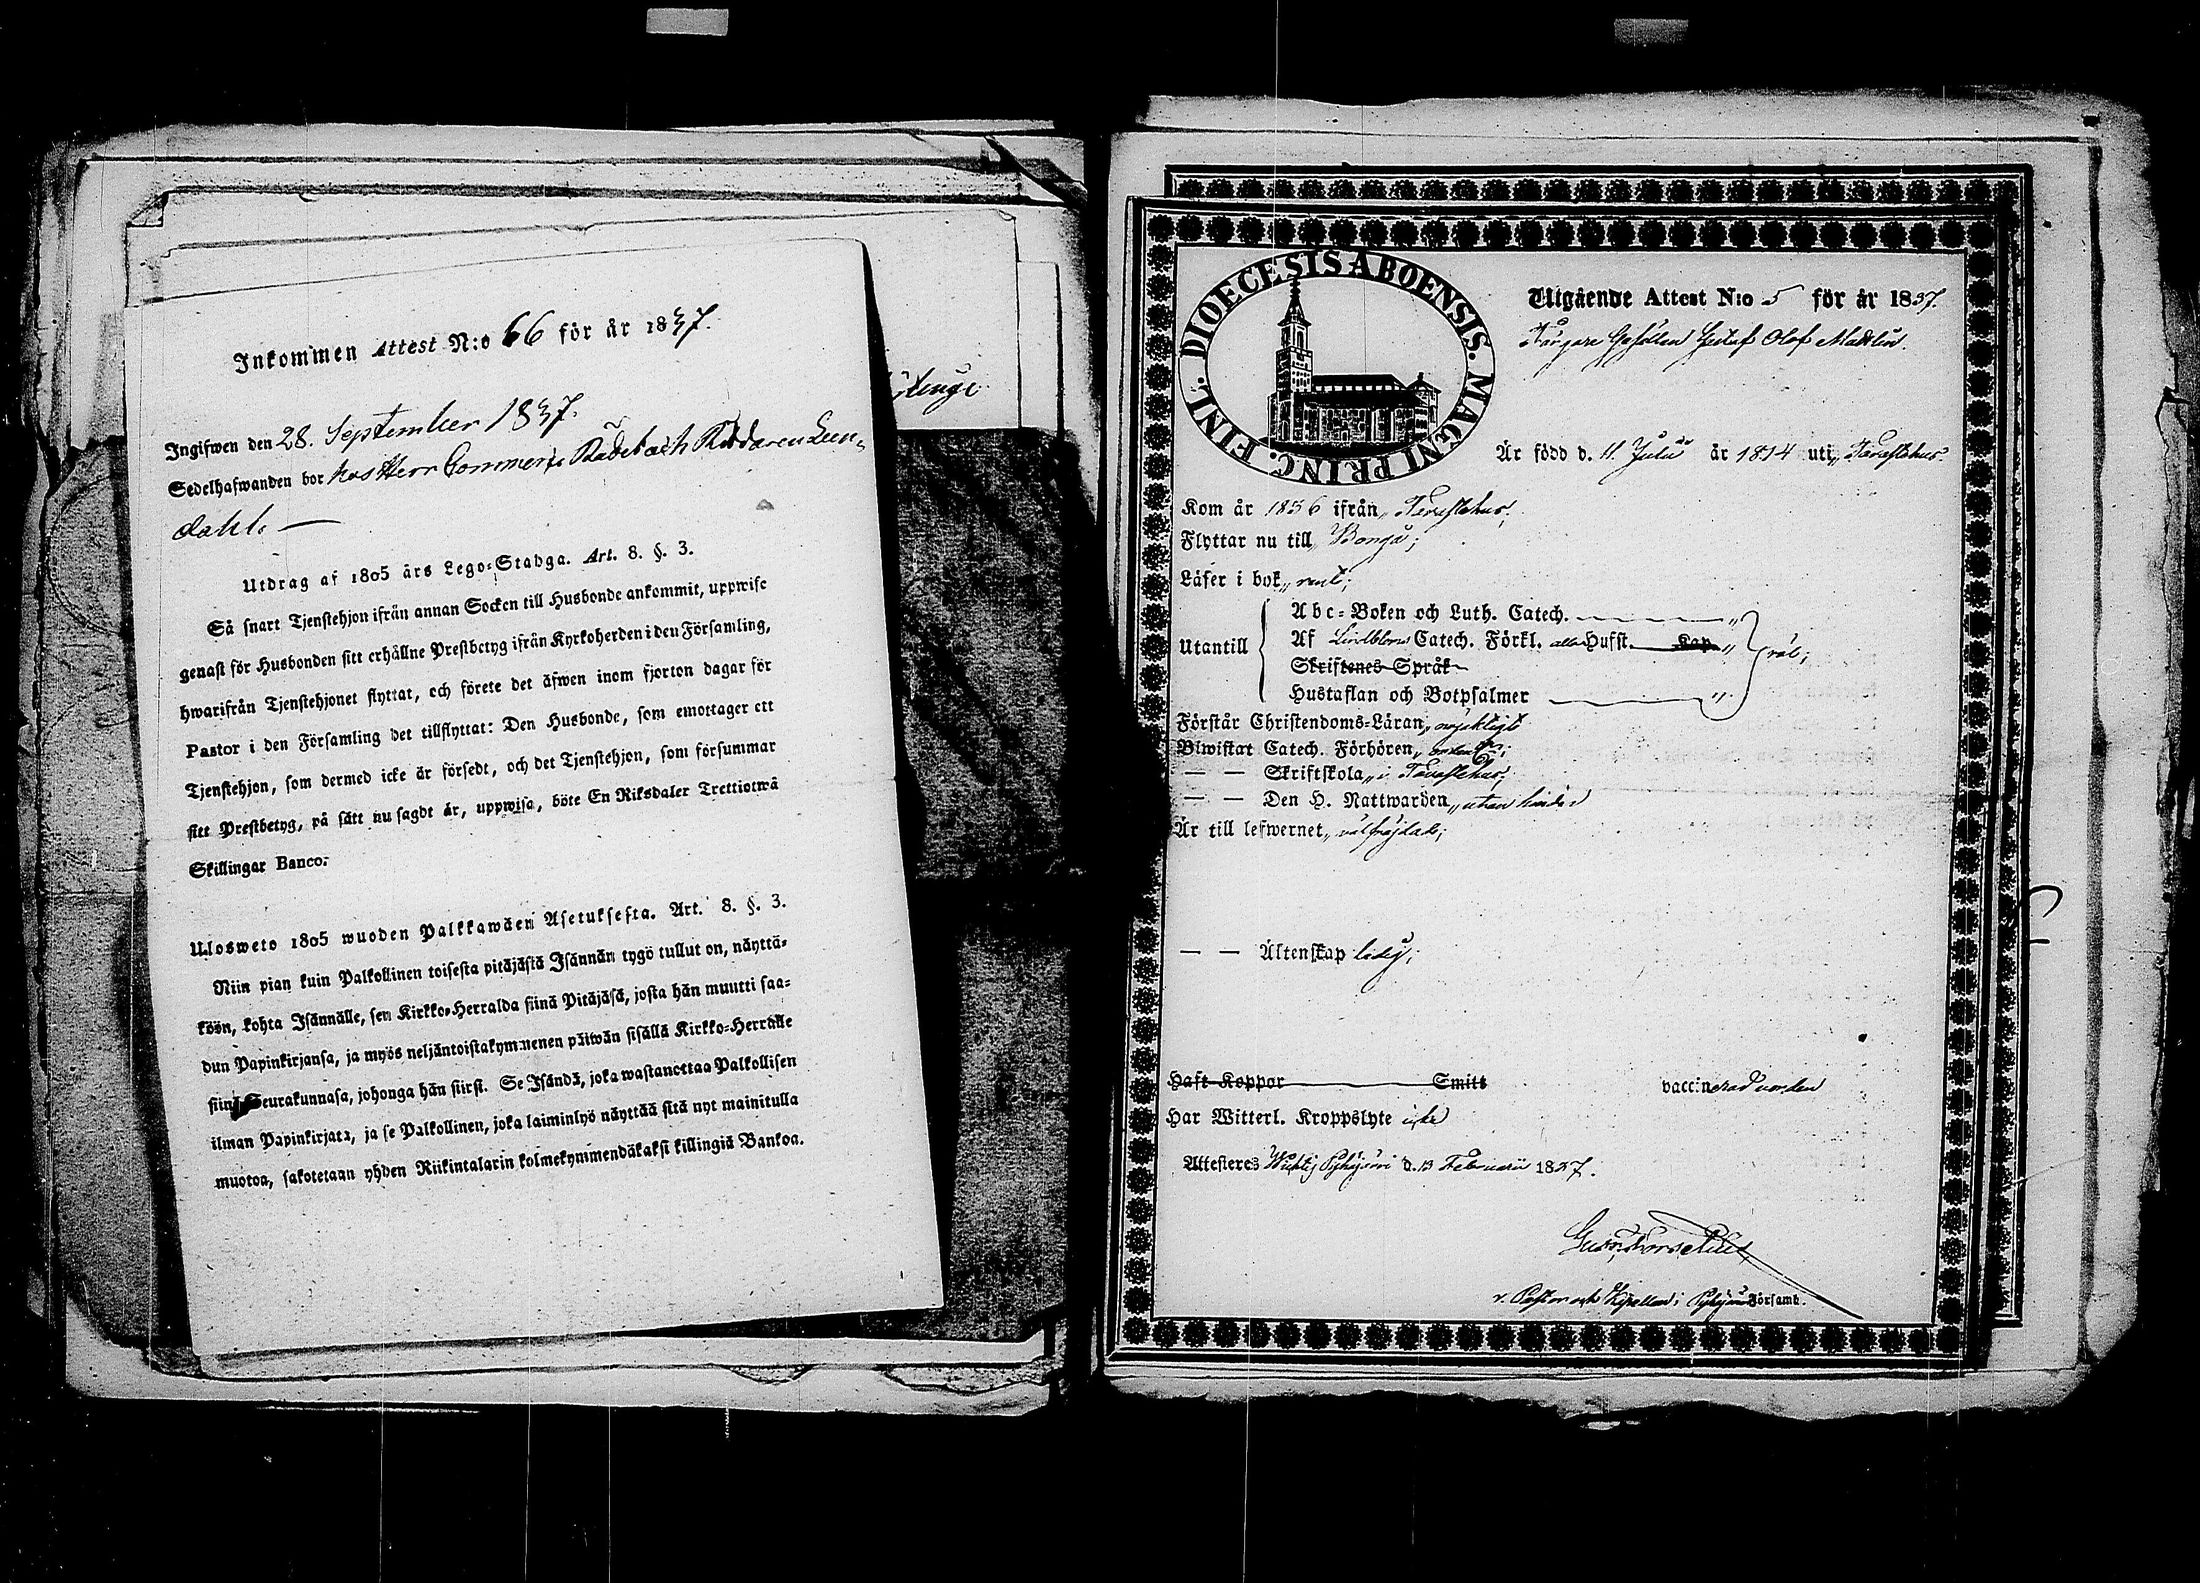 Inkommen Attest N:o 66 för år 1837.
Ingifwen den 28. September 1837.
Sedelhafwanden bor hos Herr Commerce Rådet och Riddaren Leen-
dahl. —
Utdrag af 1805 års Lego-Stadga. Art. 8. §. 3.
Så snart Tjenstehjon ifrån annan Socken till Husbonde ankommit, uppwise
genast för Husbonden sitt erhållne Prestbetyg ifrån Kyrkoherden i den Församling,
hwarifrån Tjenstehjonet flyttat, och förete det äfwen inom fjorton dagar för
Pastor i den Församling det tillflyttat: Den Husbonde, som emottager ett
Tjenstehjon, som dermed icke är försedt, och det Tjenstehjon, som försummar
sitt Prestbetyg, på sätt nu sagdt är, uppwisa, böte En Riksdaler Trettiotwå
Skillingar Banco.
Ulosweto 1805 wuoden Palkkawäen Asetuksesta. Art. 8. §. 3.
Niin pian kuin Palkollinen toisesta pitäjästä Isännän tygö tullut on, näyttä-
köön, kohta Isännälle, sen Kirkko-Herralda siinä Pitäjäsä, josta hän muutti saa-
dun Papinkirjansa, ja myös neljäntoistakymmenen päiwän sisällä Kirkko-Herralle
siinä Seurakunnasa, johonga hän siirsi. Se Isändä, joka wastanottaa Palkollisen
ilman Papinkirjata, ja se Palkollinen, joka laiminlyö näyttää sitä nyt mainitulla
muotoa, sakotetaan yhden Riikintalarin kolmekymmendäkaksi killingiä Bankoa.
DIOECESIS ABOENSIS. MAGNI PRINC. FINL.
Utgående Attest N:o 5 för år 1837.
Färgare Gesällen Gustaf Olof Malelin
Är född d. 11 Julii år 1814 uti Tavastehus.
Kom år 1836 ifrån Tavastehus;
Flyttar nu till Borgå;
Läser i bok rent;
Utantill
Abc-Boken och Luth. Catech.
Af Lindbloms Catech. Förkl. alla Hufst. Kap
Skriftenes Språk
väl;
Hustaflan och Botpsalmer
Förstår Christendoms-Läran nöjaktigt
Biwistat Catech. Förhören
— — Skriftskola i Tavastehus;
— — Den H. Nattwarden utan hinder
Är till lefwernet välfrejdad;
— — Äktenskap ledig;
Haft Koppor Smitt vaccinerad worden
Har Witterl. Kroppslyte icke
Attesteres Wichtis Pyhäjärvi d. 13 Februarii 1837.
v. Pastor och Kapellan i Pyhäjärvi Församl.